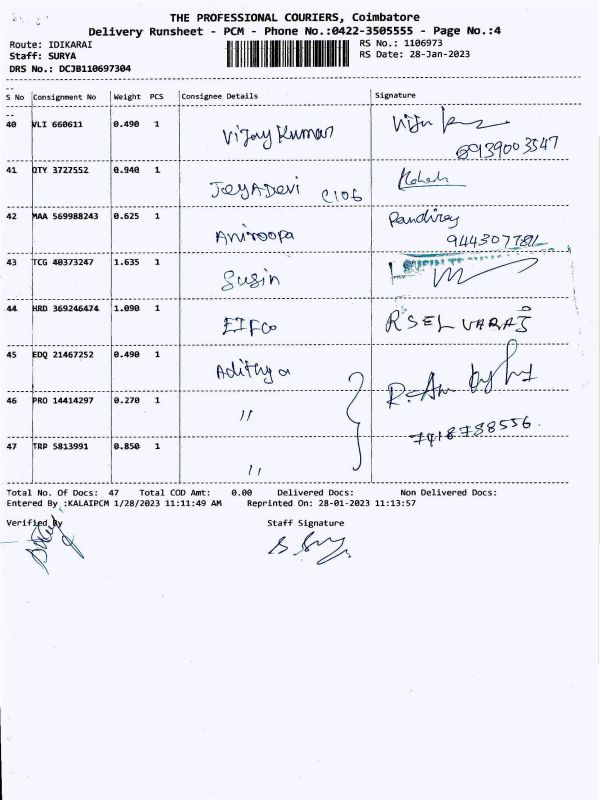 THE PROFESSIONAL COURIERS, Coimbatore
Delivery Runsheet - PCM - Phone No.:0422-3505555 - Page No.:4
Route: IDIKARAI RS No.: 1106973
Staff: SURYA RS Date: 28-Jan-2023
DRS No.: DCJB110697304
S No Consignment No Weight PCS Consignee Details Signature
40 VLI 660611 0.490 1 Vijay Kumar
6939003547
41 QTY 3727552 0.940 1 JeyADevi C106
42 MAA 569988243 0.625 1 Aniroopa
43 TCG 40373247 1.635 1 Susin
44 HRD 369246474 1.090 1 EIFCo R SELVARAJ
45 EDQ 21467252 0.490 1 Adithya
46 PRO 14414297 0.270 1 "
7418788556.
47 TRP 5813991 0.850 1 "
Total No. Of Docs: 47 Total COD Amt: 0.00 Delivered Docs: Non Delivered Docs:
Entered By :KALAIPCM 1/28/2023 11:11:49 AM Reprinted On: 28-01-2023 11:13:57
Verified By Staff Signature